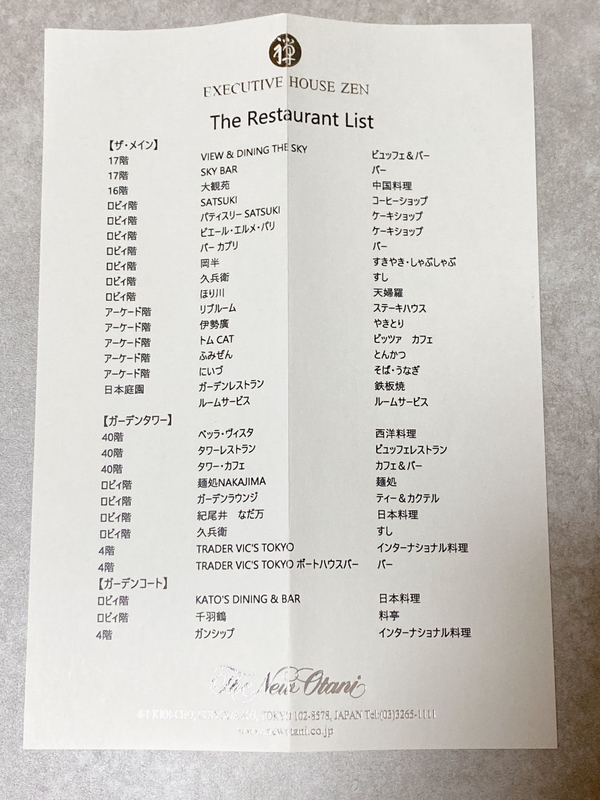 禅
EXECUTIVE HOUSE ZEN
The Restaurant List
【ザ・メイン】
17階 VIEW & DINING THE SKY ビュッフェ&バー
17階 SKY BAR バー
16階 大観苑 中国料理
ロビィ階 SATSUKI コーヒーショップ
ロビィ階 パティスリー SATSUKI ケーキショップ
ロビィ階 ピエール・エルメ・パリ ケーキショップ
ロビィ階 バー カプリ バー
ロビィ階 岡半 すきやき・しゃぶしゃぶ
ロビィ階 久兵衛 すし
ロビィ階 ほり川 天婦羅
アーケード階 リブルーム ステーキハウス
アーケード階 伊勢廣 やきとり
アーケード階 トム CAT ピッツァ カフェ
アーケード階 ふみぜん とんかつ
アーケード階 にいづ そば・うなぎ
日本庭園 ガーデンレストラン 鉄板焼
ルームサービス ルームサービス
【ガーデンタワー】
40階 ベッラ・ヴィスタ 西洋料理
40階 タワーレストラン ビュッフェレストラン
40階 タワー・カフェ カフェ&バー
ロビィ階 麺処NAKAJIMA 麺処
ロビィ階 ガーデンラウンジ ティー&カクテル
ロビィ階 紀尾井 なだ万 日本料理
ロビィ階 久兵衛 すし
4階 TRADER VIC'S TOKYO インターナショナル料理
4階 TRADER VIC'S TOKYO ボートハウスバー バー
【ガーデンコート】
ロビィ階 KATO'S DINING & BAR 日本料理
ロビィ階 千羽鶴 料亭
4階 ガンシップ インターナショナル料理
The New Otani
TOKYO 102-8578, JAPAN Tel:(03)3265-1111